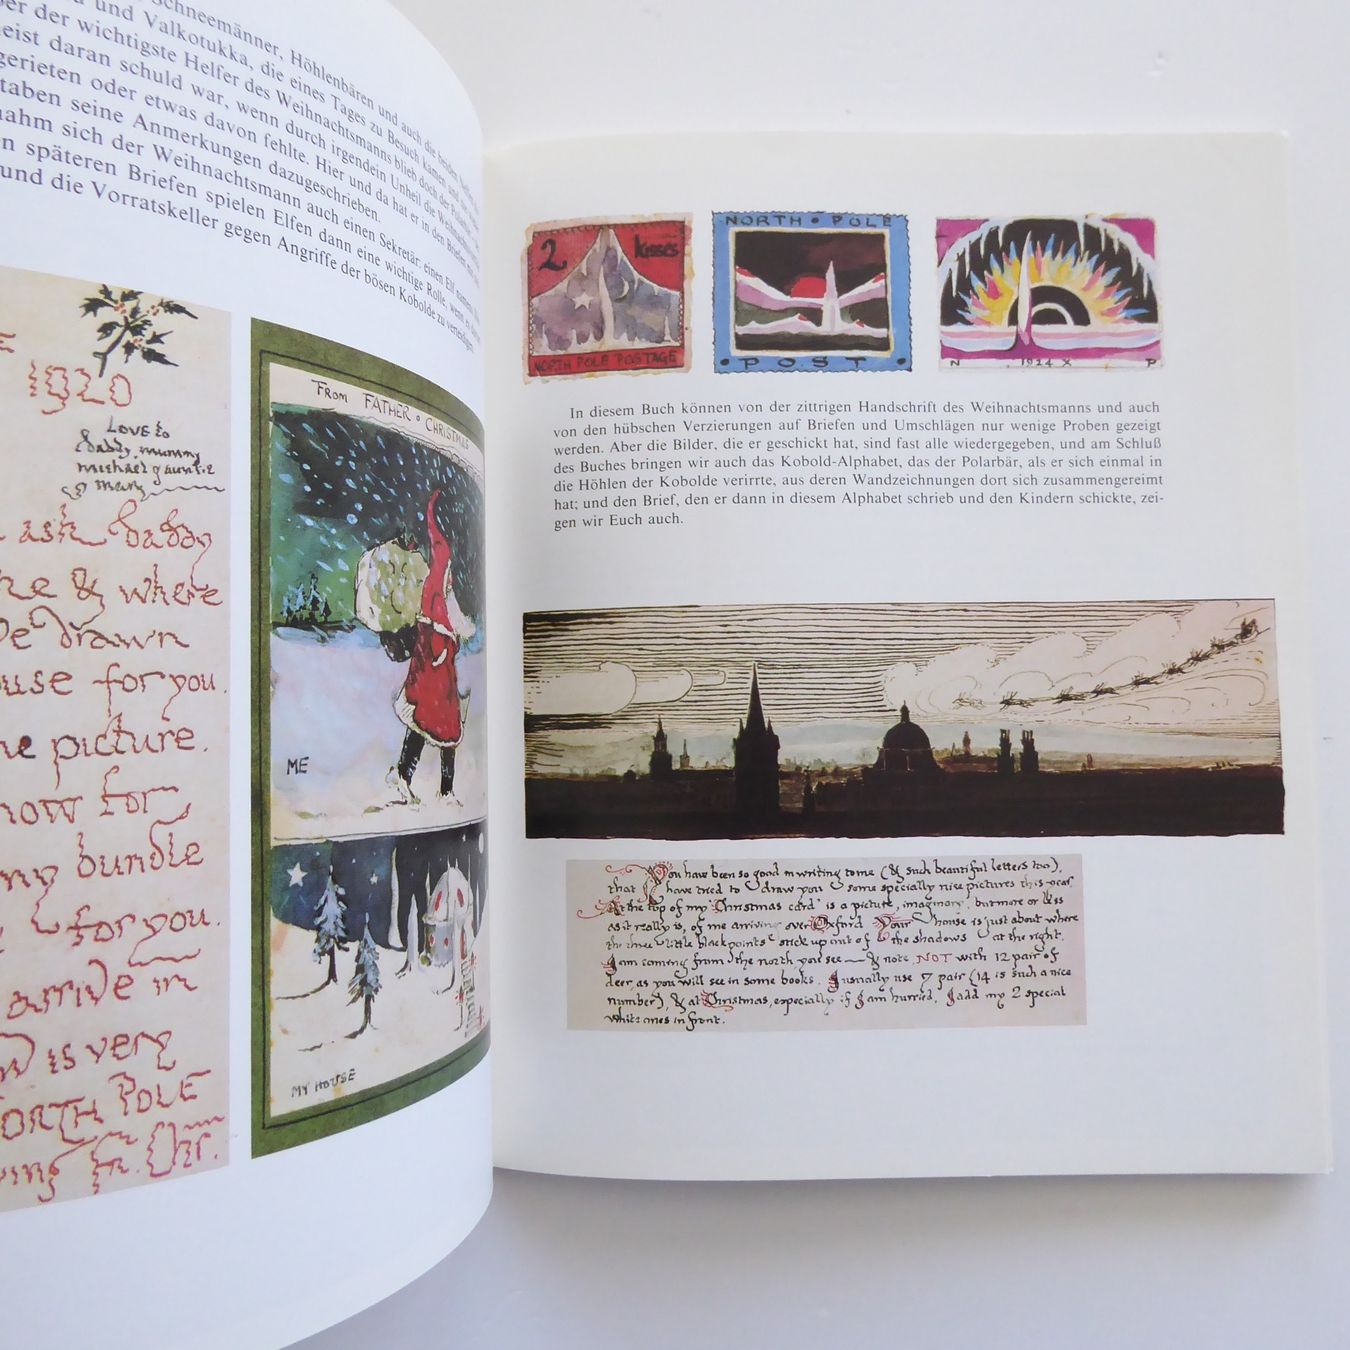 Schneemänner, Höhlenbären und auch die beiden
und Valkotukka, die eines Tages zu Besuch kamen und
der wichtigste Helfer des Weihnachtsmanns blieb doch der Polarbär
daran schuld war, wenn durch irgendein Unheil die
gerieten oder etwas davon fehlte. Hier und da hat er in den Briefen
seine Anmerkungen dazugeschrieben.
nahm sich der Weihnachtsmann auch einen Sekretär: einen Elf namens
späteren Briefen spielen Elfen dann eine wichtige Rolle, wenn er
und die Vorratskeller gegen Angriffe der bösen Kobolde zu verteidigen
1920
Love to
daddy, mummy
michael & auntie
mary
ask daddy
& where
drawn
for you.
picture.
now for
my bundle
for you.
arrive in
is very
NORTH POLE
Fr. Chr.
From FATHER CHRISTMAS
ME
MY HOUSE
2 kisses
NORTH POLE POSTAGE
NORTH • POLE
• POST •
N 1924 X P
In diesem Buch können von der zittrigen Handschrift des Weihnachtsmanns und auch
von den hübschen Verzierungen auf Briefen und Umschlägen nur wenige Proben gezeigt
werden. Aber die Bilder, die er geschickt hat, sind fast alle wiedergegeben, und am Schluß
des Buches bringen wir auch das Kobold-Alphabet, das der Polarbär, als er sich einmal in
die Höhlen der Kobolde verirrte, aus deren Wandzeichnungen dort sich zusammengereimt
hat; und den Brief, den er dann in diesem Alphabet schrieb und den Kindern schickte, zei-
gen wir Euch auch.
You have been so good in writing to me (& such beautiful letters too),
that I have tried to draw you some specially nice pictures this year.
At the top of my "Christmas card" is a picture, imaginary, but more or less
as it really is, of me arriving over Oxford. Your house is just about where
the three little black points stick up out of the shadows at the right.
I am coming from the north you see — & note NOT with 12 pair of
deer, as you will see in some books. I usually use 7 pair (14 is such a nice
number), & at Christmas, especially if I am hurried, I add my 2 special
white ones in front.